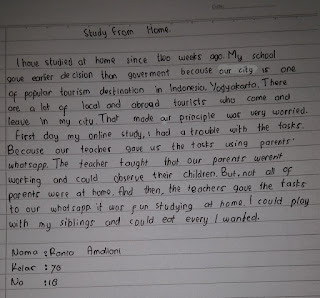 Study From Home.
I have studied at home since two weeks ago. My school
gave earlier decision than goverment because our city is one
of popular tourism destination in Indonesia, Yogyakarta. There
are a lot of local and abroad tourists who come and
leave in my city. That made our principle was very worried.
First day my online study, i had a trouble with the tasks.
Because our teacher gave us the tasks using parents'
whatsapp. The teacher taught that our parents werent
working and could observe their children. But, not all of
parents were at home. And then, the teachers gave the tasks
to our whatsapp. it was fun studying at home. I could play
with my siblings and could eat every I wanted.
Nama : Rania Amdiani
Kelas : 7G
No : 18